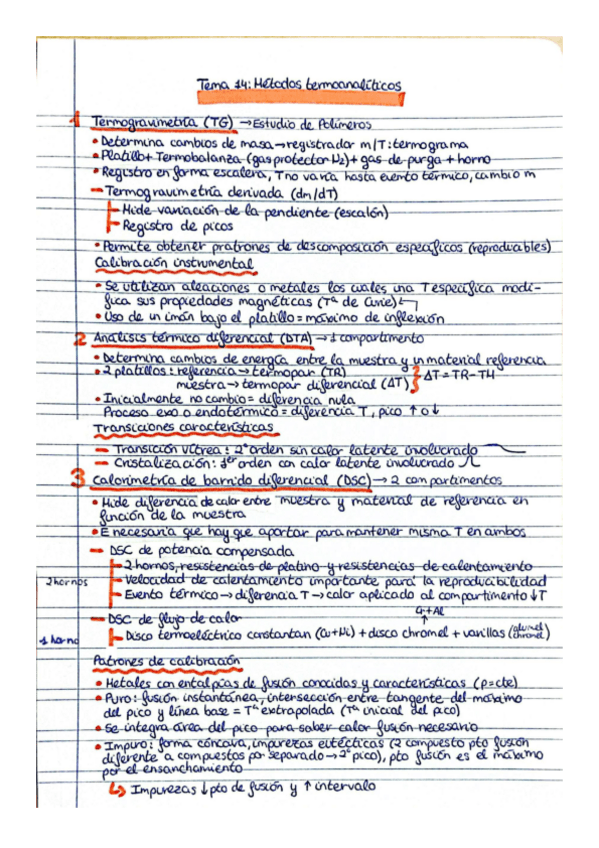 Tema 14: Métodos termoanalíticos
1 Termogravimetría (TG) → Estudio de Polímeros
• Determina cambios de masa → registrador m/T: termograma
• Platillo + Termobalanza (gas protector N2) + gas de purga + horno
• Registro en forma escalera, T no varía hasta evento térmico, cambio m
- Termogravimetría derivada (dm/dT)
Mide variación de la pendiente (escalón)
Registro de picos
• Permite obtener pratrones de descomposición específicos (reproducables)
Calibración instrumental
• Se utilizan aleaciones o metales los cuales una T específica modi-
fica sus propiedades magnéticas (Tª de Curie)
• Uso de un imán bajo el platillo = máximo de inflexión
2 Análisis térmico diferencial (DTA) → 1 compartimento
• Determina cambios de energía entre la muestra y un material referencia
• 2 platillos: referencia → termopar (TR)
muestra → termopar diferencial (ΔT) } ΔT = TR - TM
• Inicialmente no cambio = diferencia nula
Proceso exo o endotérmico = diferencia T, pico ↑ o ↓
Transiciones características
- Transición vítrea: 2º orden sin calor latente involucrado
- Cristalización: 1er orden con calor latente involucrado
3 Calorimetría de barrido diferencial (DSC) → 2 compartimentos
• Mide diferencia de calor entre muestra y material de referencia en
función de la muestra
• E necesaria que hay que aportar para mantener misma T en ambos
- DSC de potencia compensada
2 hornos, resistencias de platino y resistencias de calentamiento
2 hornos Velocidad de calentamiento importante para la reproducibilidad
Evento térmico → diferencia T → calor aplicado al compartimento ↓T
- DSC de flujo de calor
Cr + Al
1 horno Disco termoeléctrico constantan (Cu + Ni) + disco chromel + varillas (alumel chromel)
Patrones de calibración
• Metales con entalpías de fusión conocidas y características (p = cte)
• Puro: fusión instantánea, intersección entre tangente del máximo
del pico y línea base = Tª extrapolada (Tª inicial del pico)
• Se integra área del pico para saber calor fusión necesario
• Impuro: forma cóncava, impurezas eutécticas (2 compuesto pto fusión
diferente a compuestos por separado → 2º pico), pto fusión es el máximo
por el ensanchamiento
↳ Impurezas ↓ pto de fusión y ↑ intervalo